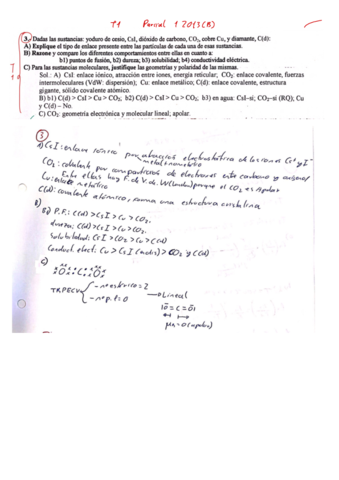 T1 Parcial 1 2013(B)
3. Dadas las sustancias: yoduro de cesio, CsI, dióxido de carbono, CO2, cobre, Cu, y diamante, C(d):
A) Explique el tipo de enlace presente entre las partículas de cada una de esas sustancias.
B) Razone y compare los diferentes comportamientos entre ellas en cuanto a:
b1) puntos de fusión, b2) dureza; b3) solubilidad; b4) conductividad eléctrica.
C) Para las sustancias moleculares, justifique las geometrías y polaridad de las mismas.
Sol.: A) CsI: enlace iónico, atracción entre iones, energía reticular; CO2: enlace covalente, fuerzas
intermoleculares (VdW: dispersión); Cu: enlace metálico; C(d): enlace covalente, estructura
gigante, sólido covalente atómico.
B) b1) C(d) > CsI > Cu > CO2; b2) C(d) > CsI > Cu > CO2; b3) en agua: CsI–sí; CO2–sí (RQ), Cu
y C(d) – No.
C) CO2: geometría electrónica y molecular lineal; apolar.
3
a) CsI: enlace iónico por atracción electrostática de los iones Cs+ y I-
CO2: covalente por compartición de electrones entre carbono y oxígeno
Entre ellas hay F. de V. d. W (London) porque el CO2 es apolar
Cu: enlace metálico
C(d): covalente atómico, forma una estructura cristalina
B)
B1) P.F.: C(d) > CsI > Cu > CO2
dureza: C(d) > CsI > Cu > CO2
Solubilidad: CsI > CO2 > Cu > C(d)
Conduct. elect: Cu > CsI > CO2 y C(d)
C)
:O::C::O:
TRPECV
- nº estérico = 2
- nº p.l = 0
Lineal
|O = C = O|
μR = 0 (apolar)